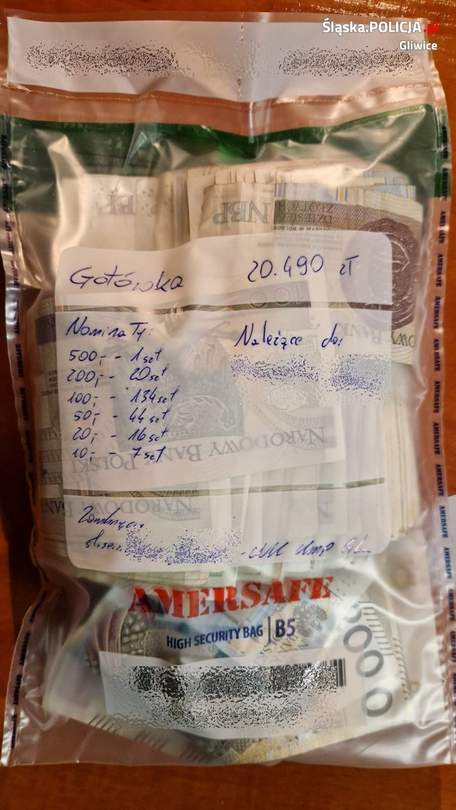 Śląska.POLICJA.pl
Gliwice
NBP
Gotówka 20.490 zł
Nominały:
Należące do:
500,- - 1 szt
200,- - 20 szt
100,- - 134 szt
50,- - 44 szt
20,- - 16 szt
10,- - 7 szt
NARODOWY BANK POLSKI
AMERSAFE
HIGH SECURITY BAG B5